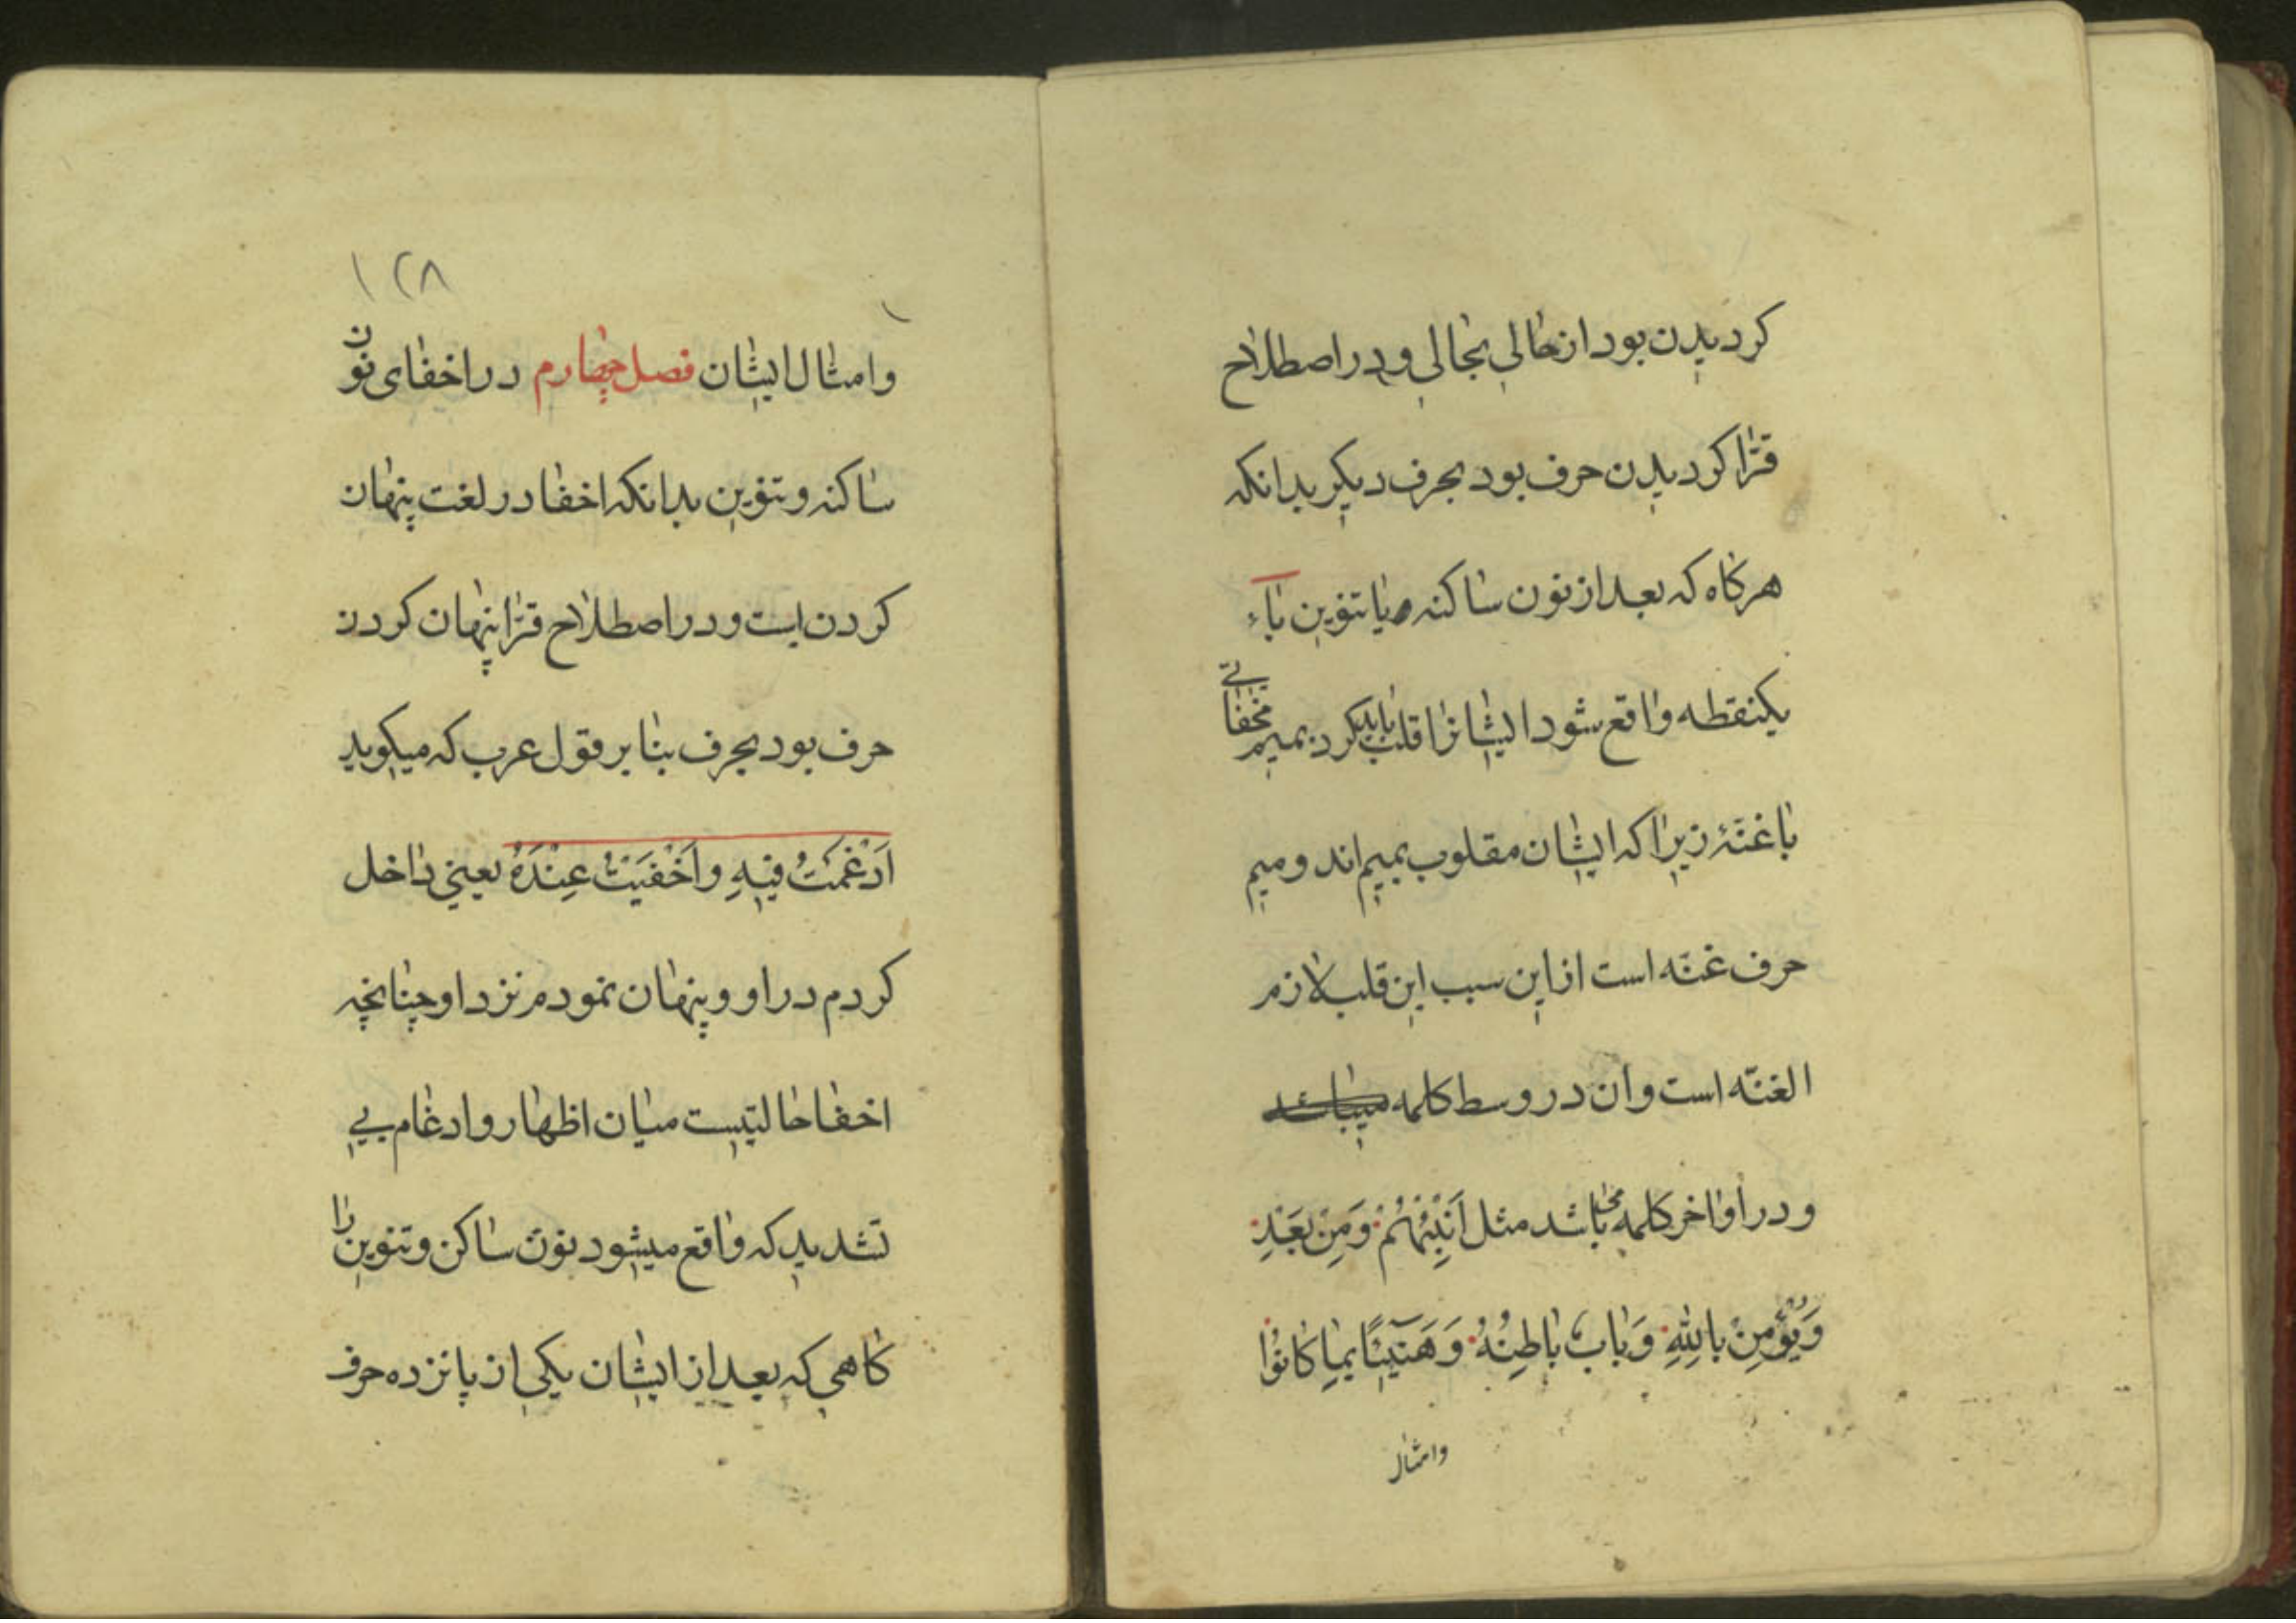 کردیدن بود از حالی بحالی و در اصطلاح
قرّا کردیدن حرف بود بحرف دیکر بدانکه
هرکاه که بعد از نون ساکنه و یا تنوین باء
یکنقطه واقع شود ایشانرا قلب باید کرد بمیم مخفاتی
با غنّهٔ زیرا که ایشان مقلوب بمیم اند و میم
حرف غنّه است از این سبب این قلب لازم
الغنّه است وان در وسط کلمه میباشد
و در اواخر کلمه باشد مثل اَنْبِئْهُمْ وَمِنْ بَعْدِ
وَیُؤْمِنْ بِاللهِ وَبابٌ باطِنُهُ وَهَنیٓئًا بِما کانُوا
وامثال
۱۲۸
وامثال ایشان فصل چهارم در اخفای نون
ساکنه و تنوین بدانکه اخفا در لغت پنهان
کردن است و در اصطلاح قرّا پنهان کردن
حرف بود بحرف بنا بر قول عرب که میکوید
اَدْغَمْتُ فیهِ واَخْفَیْتُ عِنْدَهُ یعنی داخل
کردم در او و پنهان نمودم نزد او چنانچه
اخفا حالتیست میان اظهار و ادغام بی
تشدید که واقع میشود نون ساکن و تنوین را
کاهی که بعد از ایشان یکی از پانزده حرف